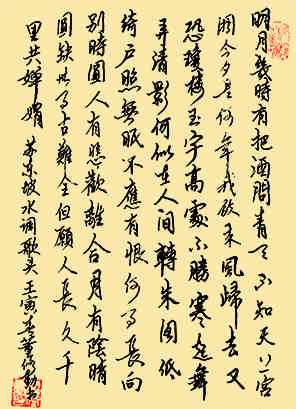 明月幾時有把酒問青天不知天上宮
闕今夕是何年我欲乘風歸去又
恐瓊樓玉宇高處不勝寒起舞
弄清影何似在人間轉朱閣低
綺戶照無眠不應有恨何事長向
別時圓人有悲歡離合月有陰晴
圓缺此事古難全但願人長久千
里共嬋娟 苏东坡水调歌头 壬寅